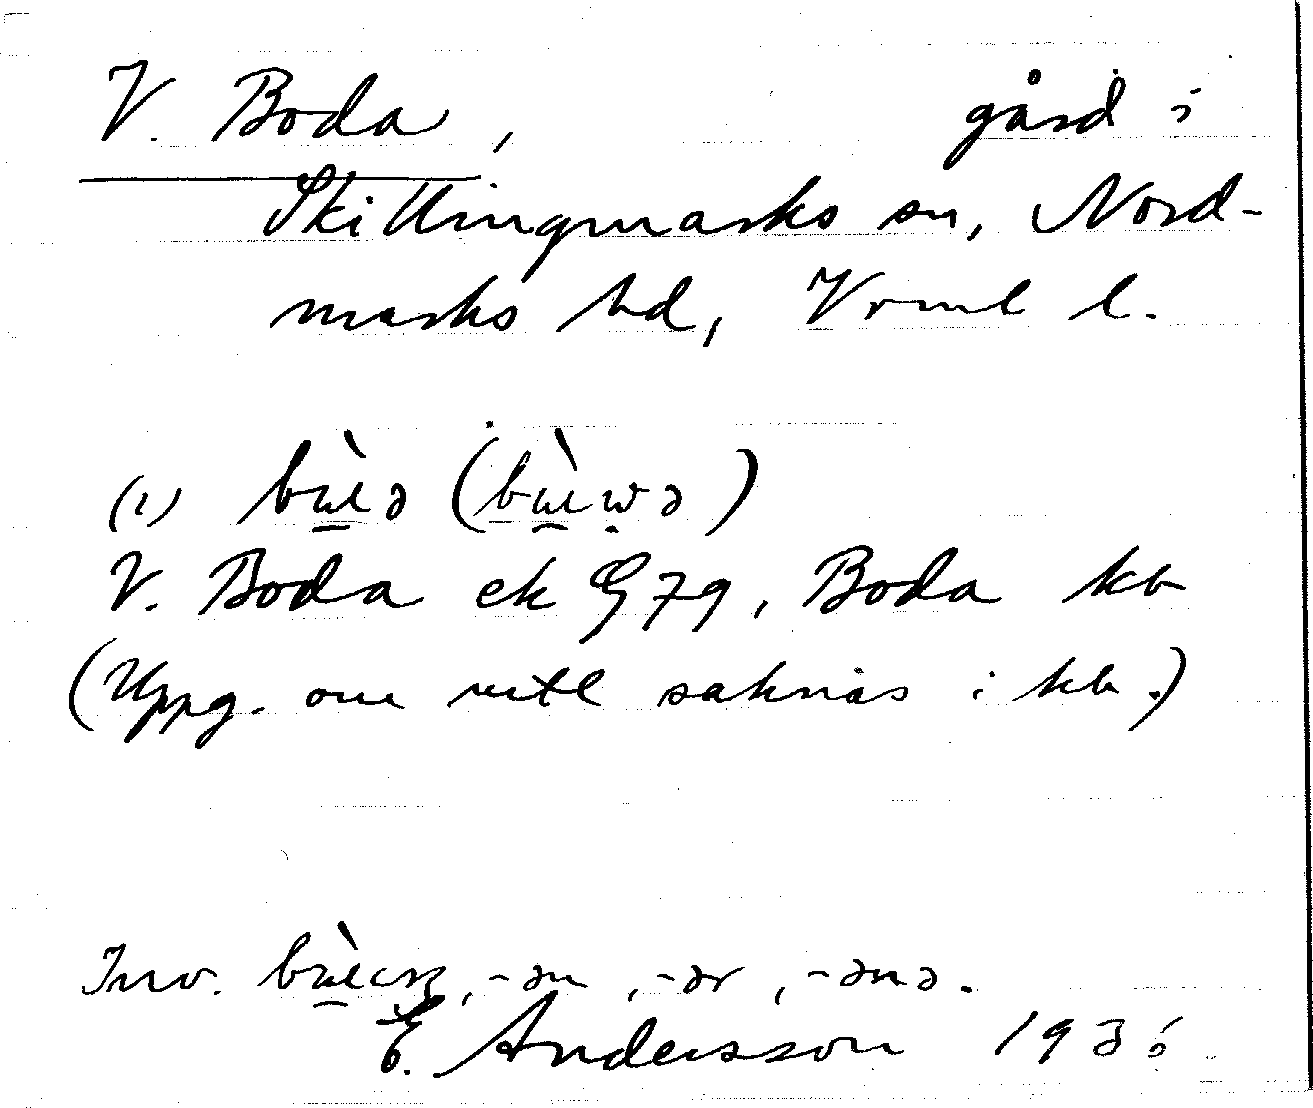 V. Boda, gård i
Skillingmarks sn, Nord-
marks hd, Vrml l.
(1)
V. Boda ek G 79, Boda kb
(Uppg. om uttl saknas i kb.)
Inv. , -ən, -ər, -ənə.
E. Andersson 1936